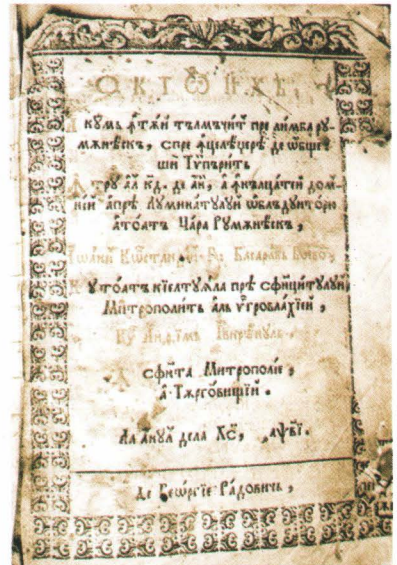 ѠКТѠИХЪ,
Акумь ꙟтѫй тълмъчит пре лимба ру-
мѫнѣскъ, спре ꙟцелѣцере де ѡбще
ши Тѷпърить
Ꙟтру ал кд. де ай, а ꙟнълцатей дом-
нїй апрѣ луминатулуй ѡблъдуиторю
атоатъ Цара Румѫнѣскъ,
Іѡанн Кѡстандин Басарабь Воево,
Кутоатъ кїелтуѧла прѣ сфинцитулуй
Митрополить аль оугровлахїей,
Кѵ Анѳїмь Ивирѣнуль.
сфита Митрополїе,
а Тѫрговищїй.
Ла Анул дела Хс, ҂аѱвї.
Де Геѡргїе Радовичь,